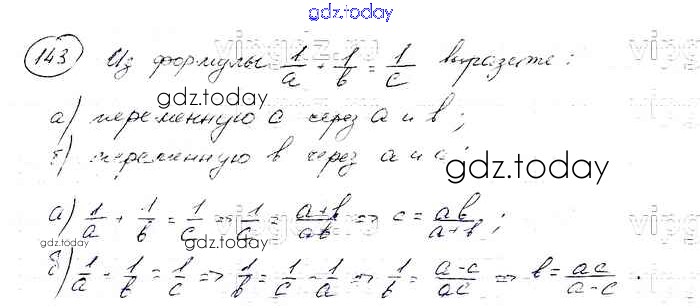 gdz.today
143 Из формулы 1/a + 1/b = 1/c выразите:
gdz.today
а) переменную c через a и b;
б) переменную b через a и c.
gdz.today
а) 1/a + 1/b = 1/c => 1/c = (a+b)/ab => c = ab/(a+b);
gdz.today
б) 1/a + 1/b = 1/c => 1/b = 1/c - 1/a => 1/b = (a-c)/ac => b = ac/(a-c).